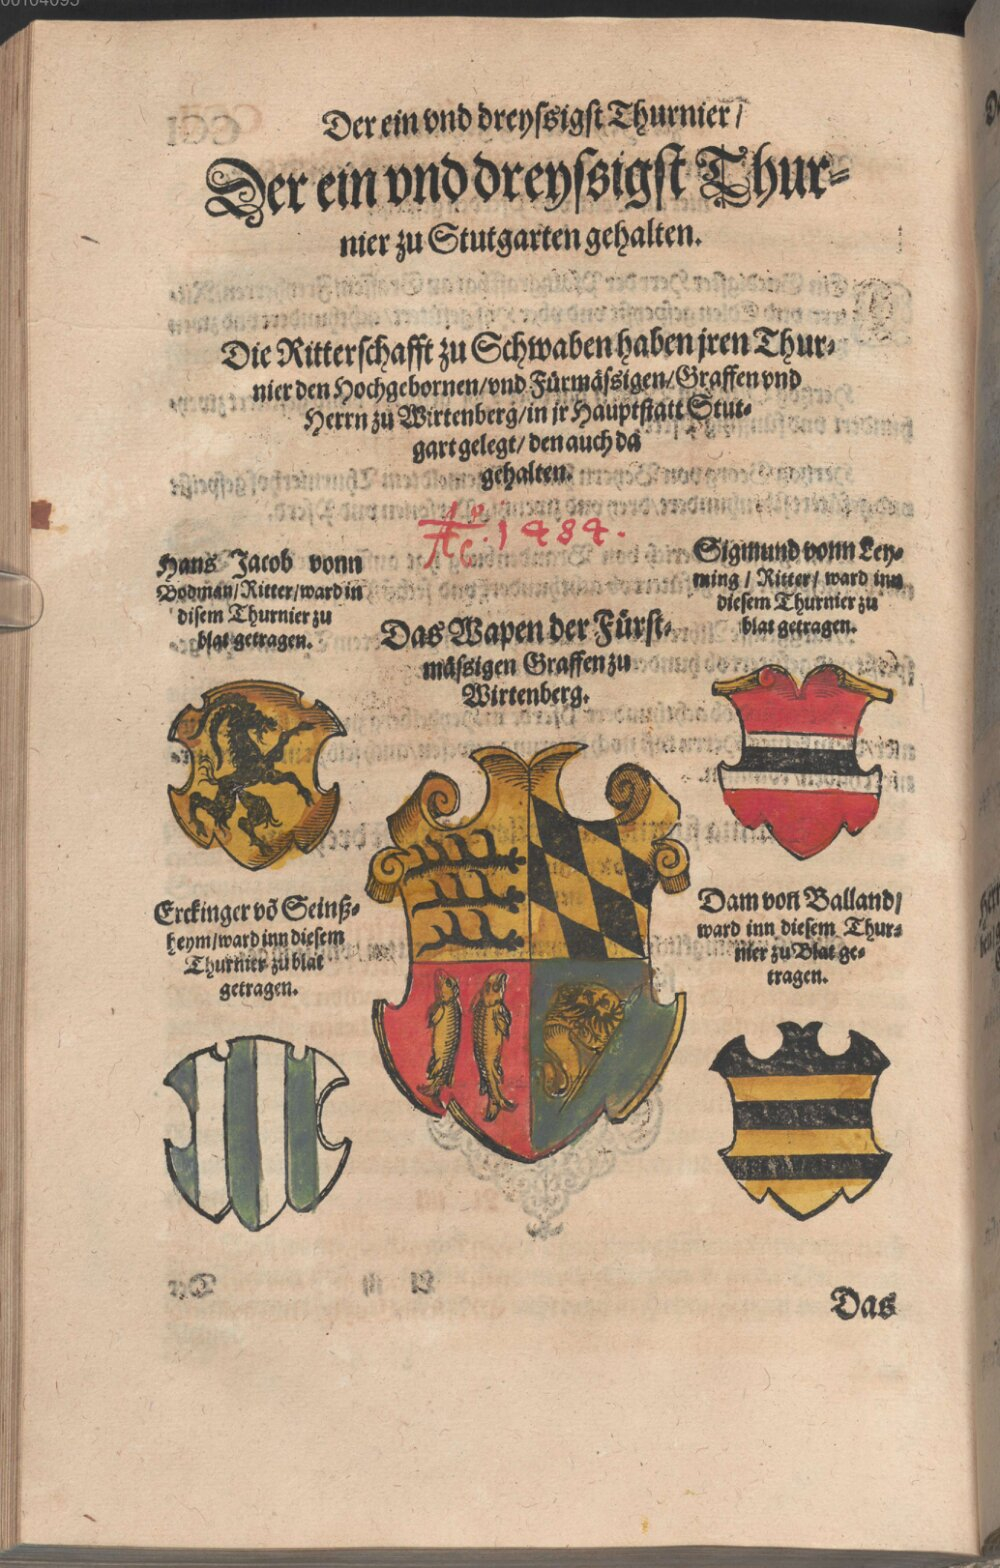 00104095
Der ein vnd dreyssigst Thurnier /
Der ein vnd dreyssigst Thur-
nier zu Stutgarten gehalten.
Die Ritterschafft zu Schwaben haben jren Thur-
nier den Hochgebornen / vnd Fürmässigen / Graffen vnd
Herrn zu Wirtenberg / in jr Hauptstatt Stut-
gart gelegt / den auch da
gehalten.
1484.
Hans Jacob vonn
Bodman / Ritter / ward in
disem Thurnier zu
blat getragen.
Sigmund vonn Ley-
ming / Ritter / ward inn
diesem Thurnier zu
blat getragen.
Das Wapen der Fürst-
mässigen Graffen zu
Wirtenberg.
Erckinger võ Seinß-
heym / ward inn diesem
Thurnier zu blat
getragen.
Dam von Balland /
ward inn diesem Thur-
nier zu Blat ge-
tragen.
Das